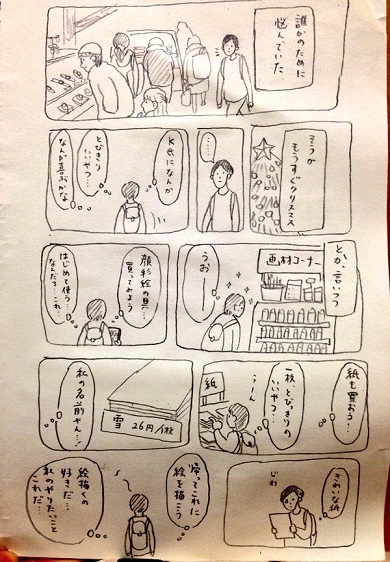 誰かのために
悩んでいた
そうか
もうすぐクリスマス
……
K氏になんか
とびきり
いいやつ…
なんか喜ぶかな
とか言いつつ
画材コーナー
うおー
顔彩絵の具…
買ってみよう
はじめて使う…
なんだろこれ…
紙も買おう!
一枚、とびっきりの
いいやつ…
うーん
紙
雪 26円/枚
私の名前やん…!
きれいな紙
じわ
帰ってこれに
絵を描こう
絵描くの
好きだ…
私のやりたいこと
これだ…